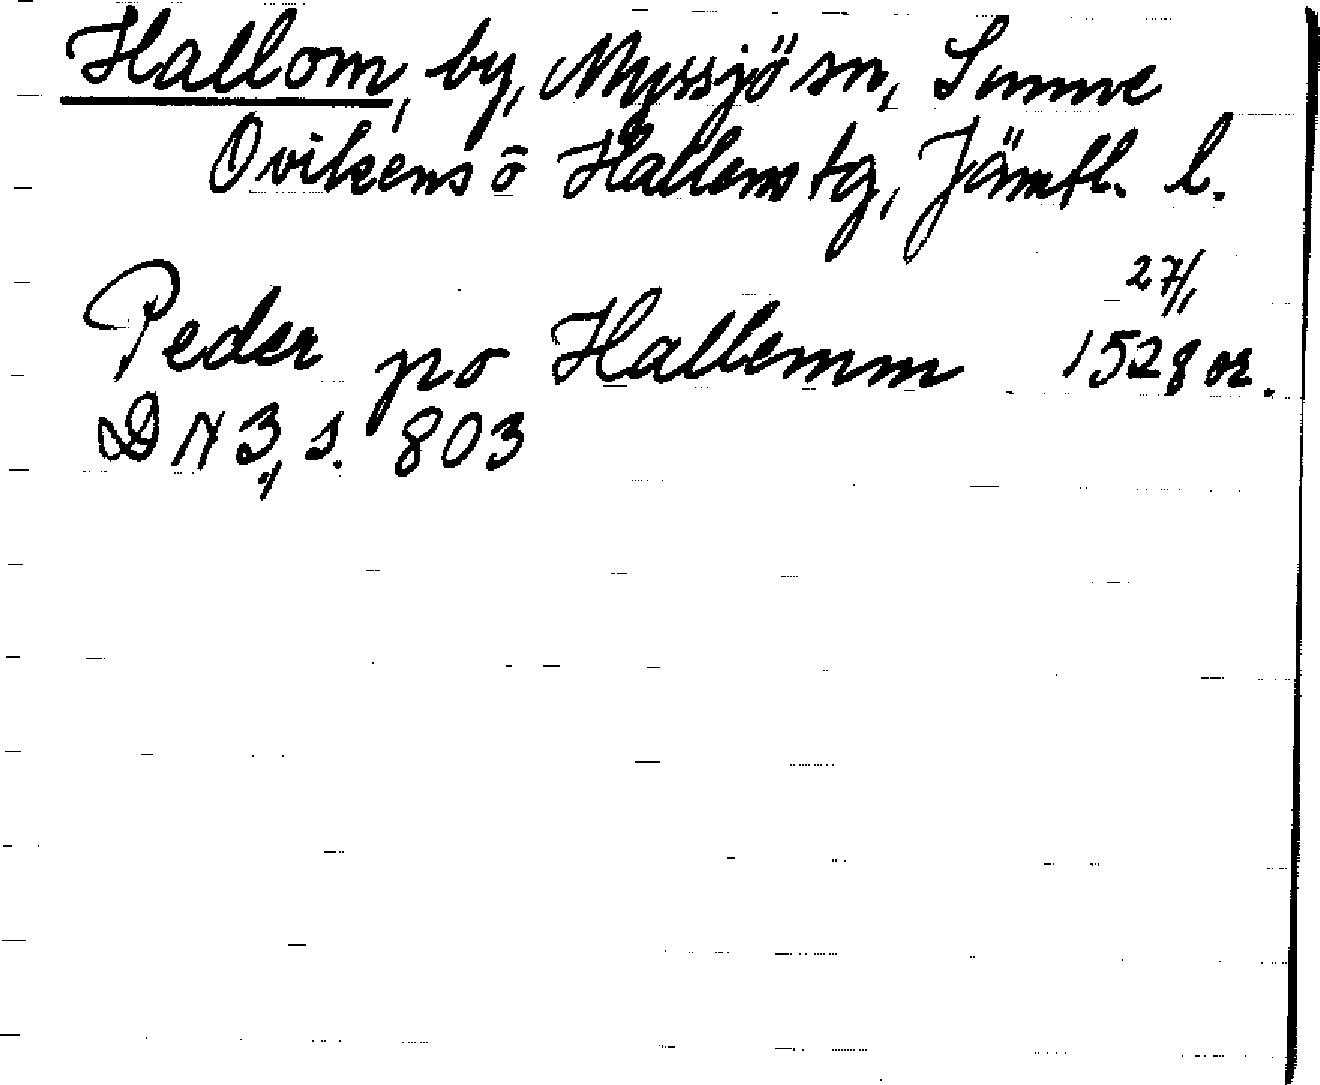 Hallom, by, Myssjö sn, Sunne
Ovikens o Hallens tg, Jämtl. l.
Peder po Hallemm 27/1 1528 or.
DN 3, s. 803